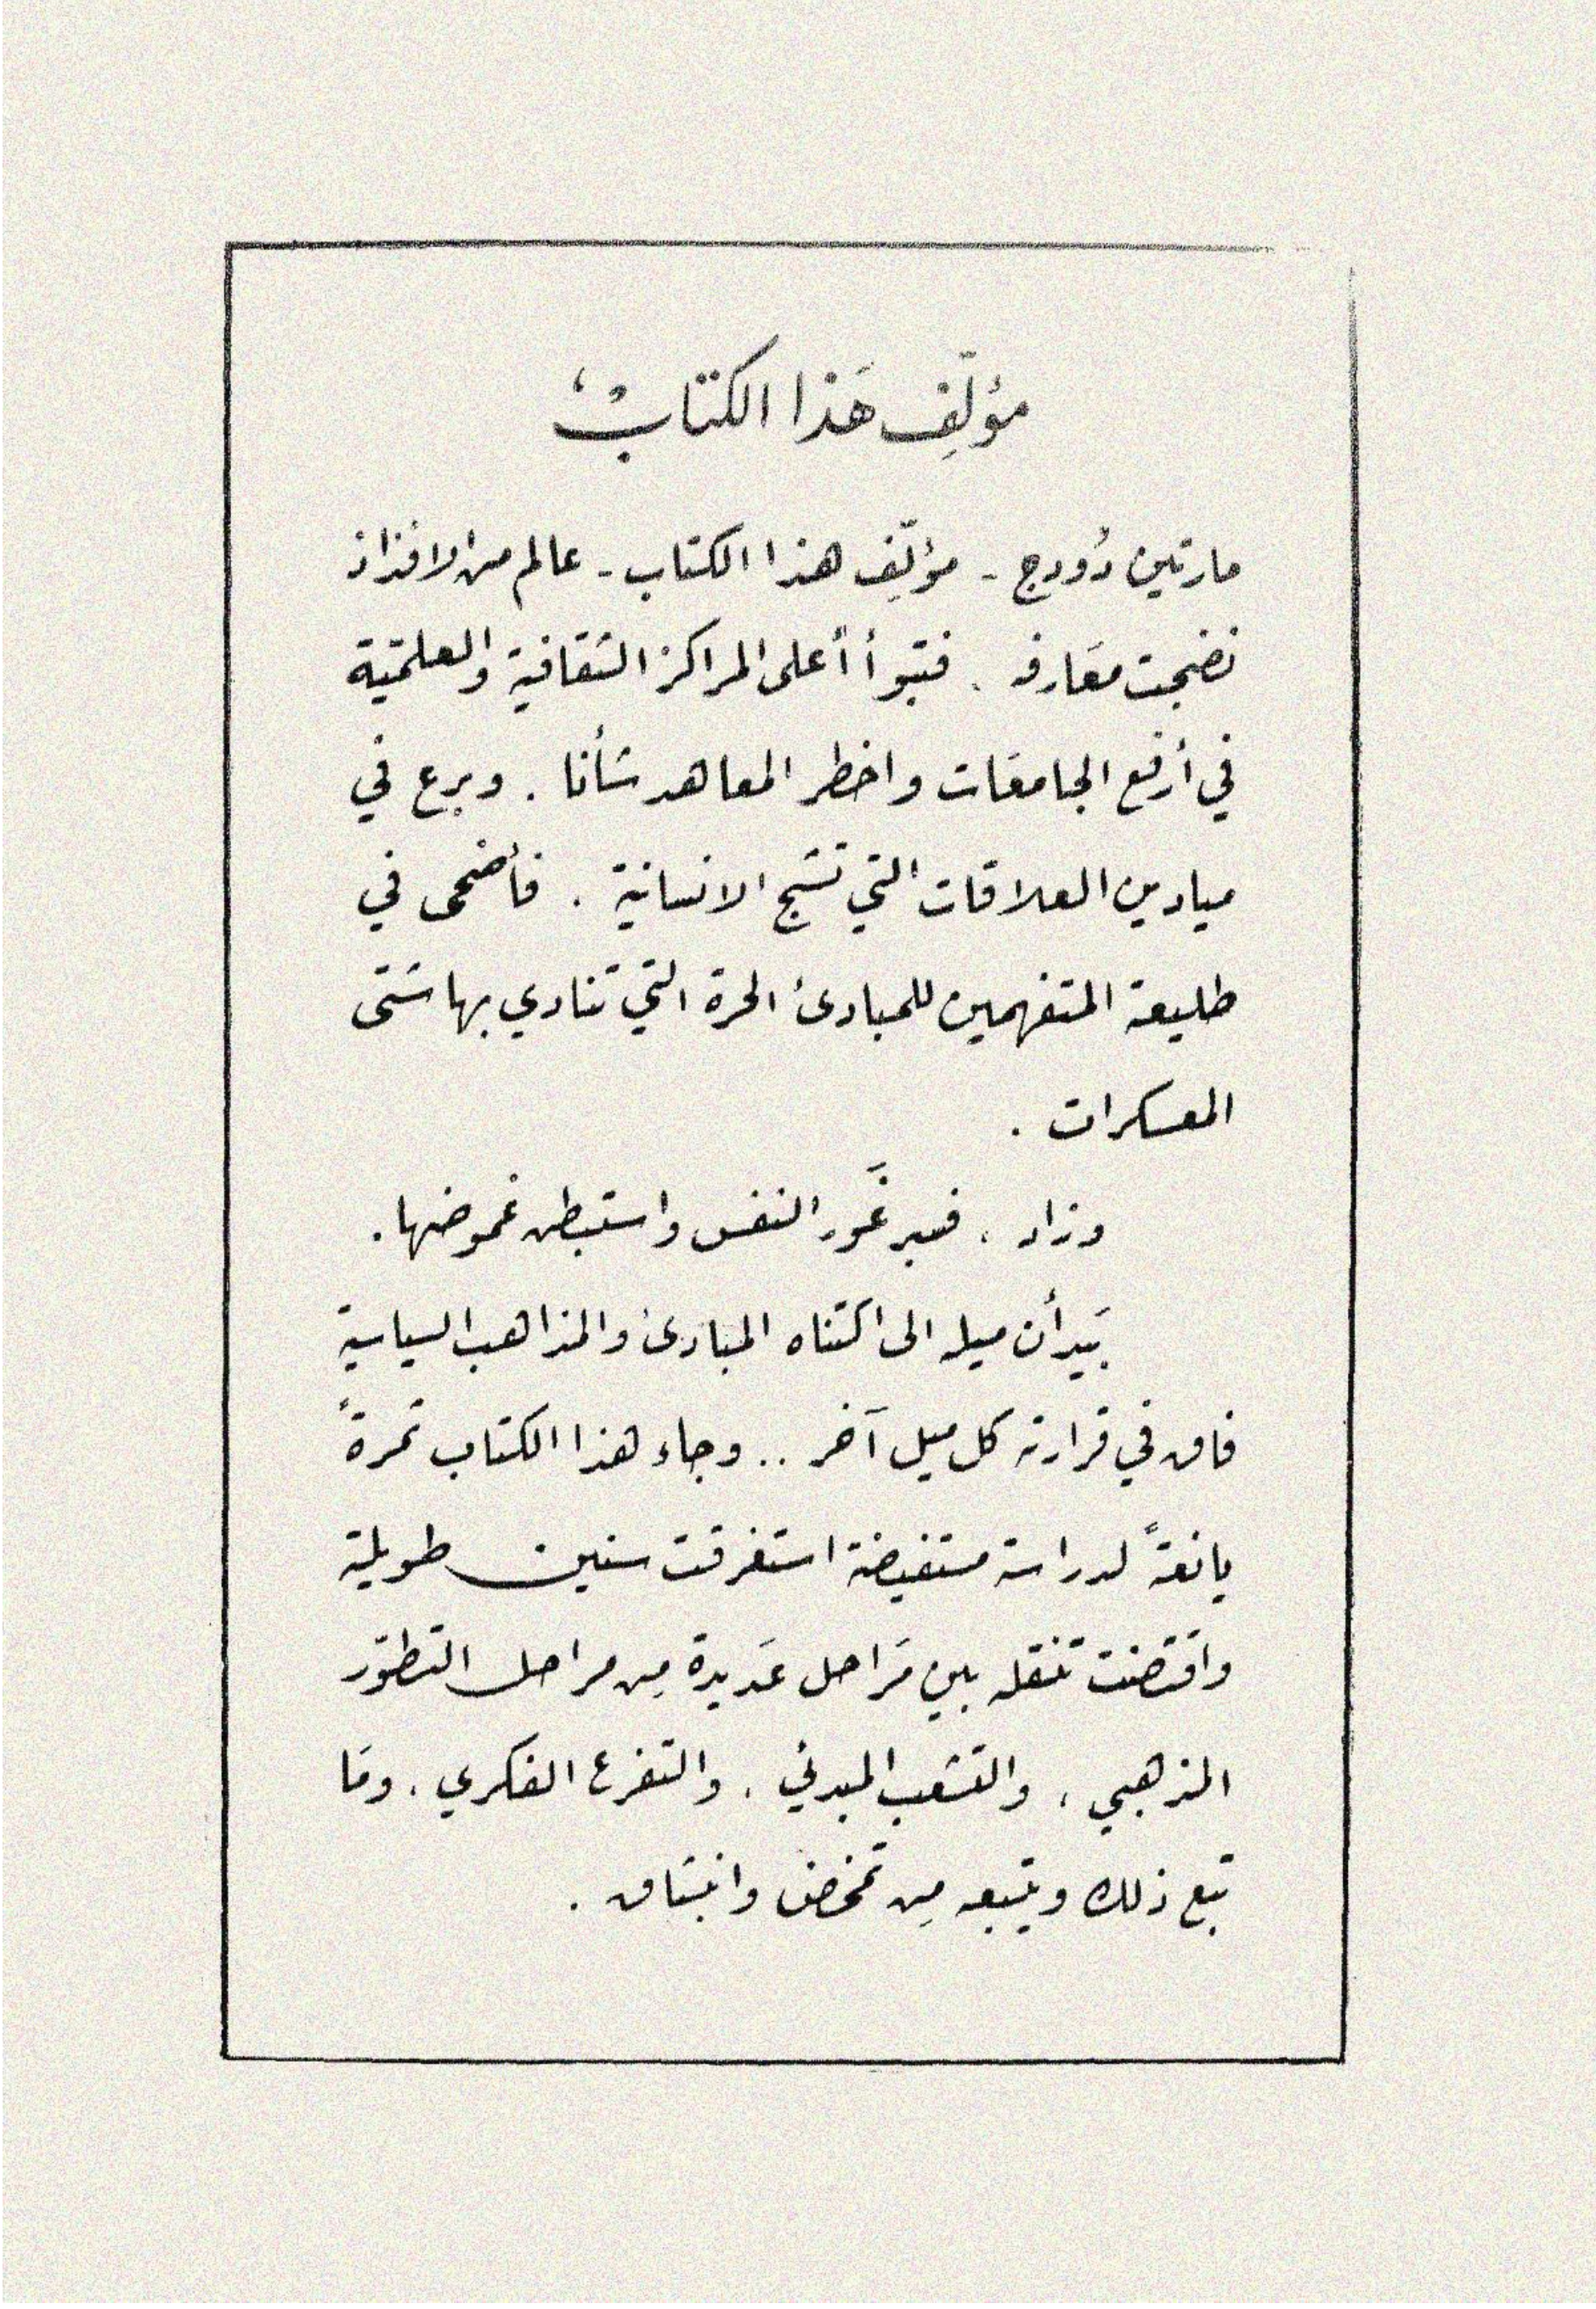 مؤلّفِ هَذا الكتابْ
مارتين دُودج - مؤلّفِ هذا الكتاب - عالم من الافذاذ
نضجت معَارفه . فتبوأ أعلى المراكز الثقافية والعلميّة
في أرفع الجامعَات واخطر المعاهد شأنا . وبرع في
ميادين العلاقات التي تنتج الانسانية . فأضحى في
طليعة المتفهمين للمبادئ الحرة التي تنادي بها شتى
المعسكرات .
وزاد . فسبر غَور النفس واستبطن غموضها .
بَيد أن ميله الى اكتناه المبادئ والمذاهب السياسية
فاق في قرارته كل ميل آخر .. وجاء هذا الكتاب ثمرةً
يانعةً لدراسة مستفيضة استغرقت سنين طويلة
واقتضت تنقله بين مَراحل عَديدة مِن مراحل التطوّر
المذهبي . والتشعب المبدئي . والتفرع الفكري . ومَا
تبع ذلك ويتبعه مِن تمخض وانبثاق .